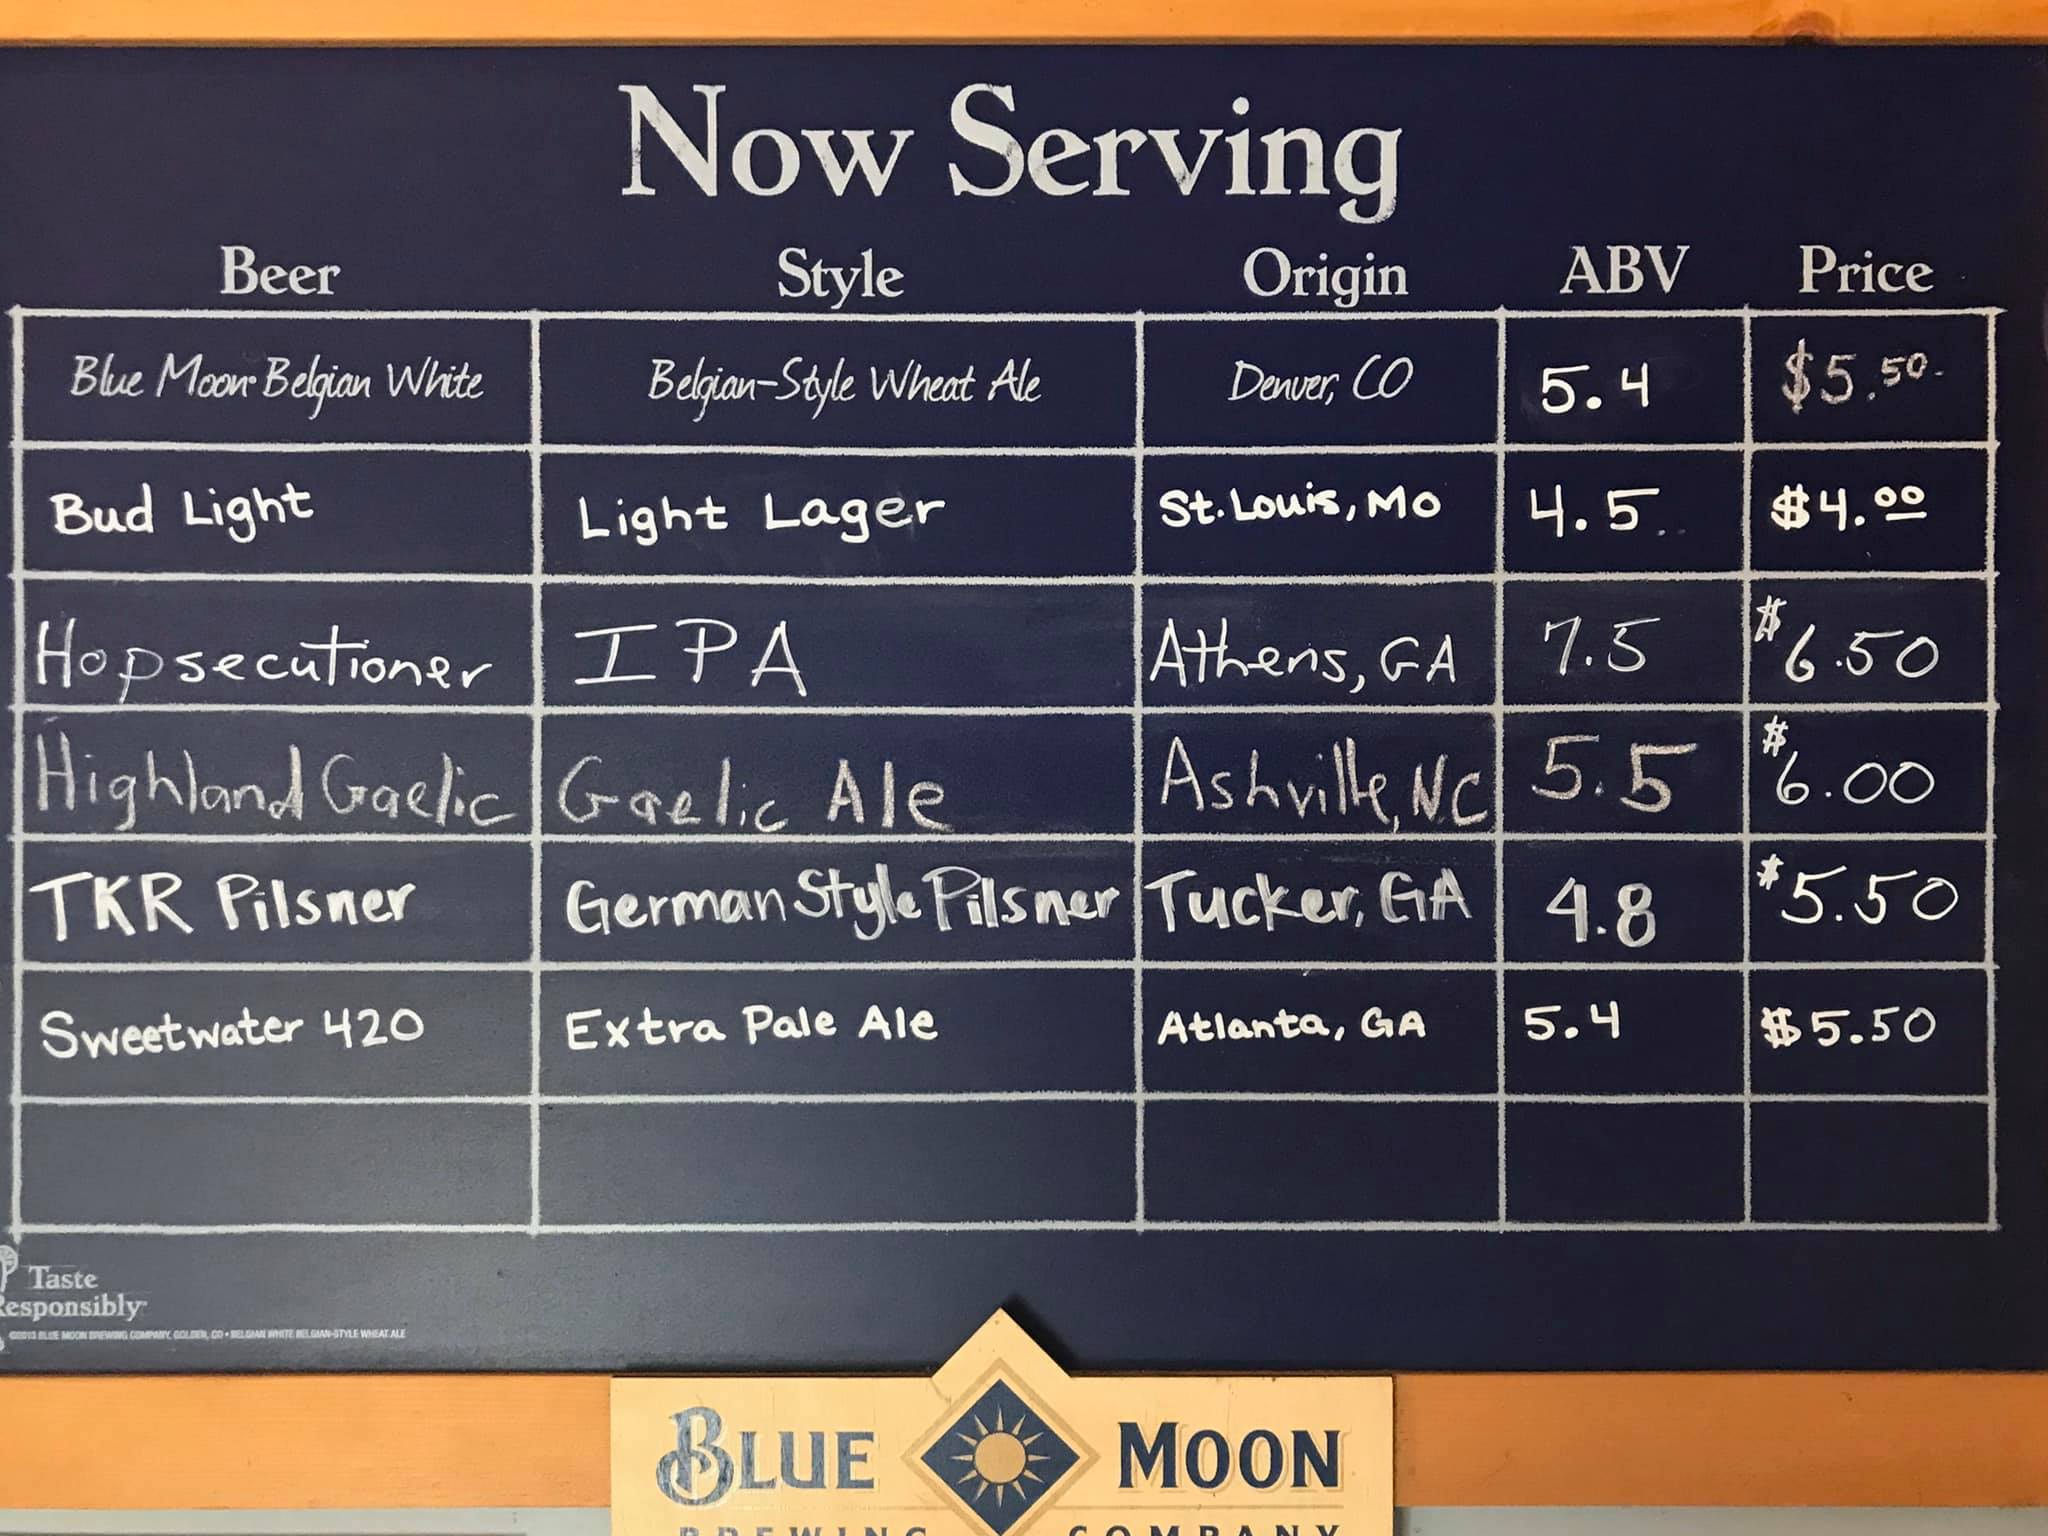 Now Serving
Beer Style Origin ABV Price
Blue Moon Belgian White Belgian-Style Wheat Ale Denver, CO 5.4 $5.50
Bud Light Light Lager St. Louis, MO 4.5 $4.00
Hopsecutioner IPA Athens, GA 7.5 $6.50
Highland Gaelic Gaelic Ale Ashville, NC 5.5 $6.00
TKR Pilsner German Style Pilsner Tucker, GA 4.8 $5.50
Sweetwater 420 Extra Pale Ale Atlanta, GA 5.4 $5.50
Taste
Responsibly
©2013 BLUE MOON BREWING COMPANY, GOLDEN, CO • BELGIAN WHITE BELGIAN-STYLE WHEAT ALE
BLUE MOON
BREWING COMPANY